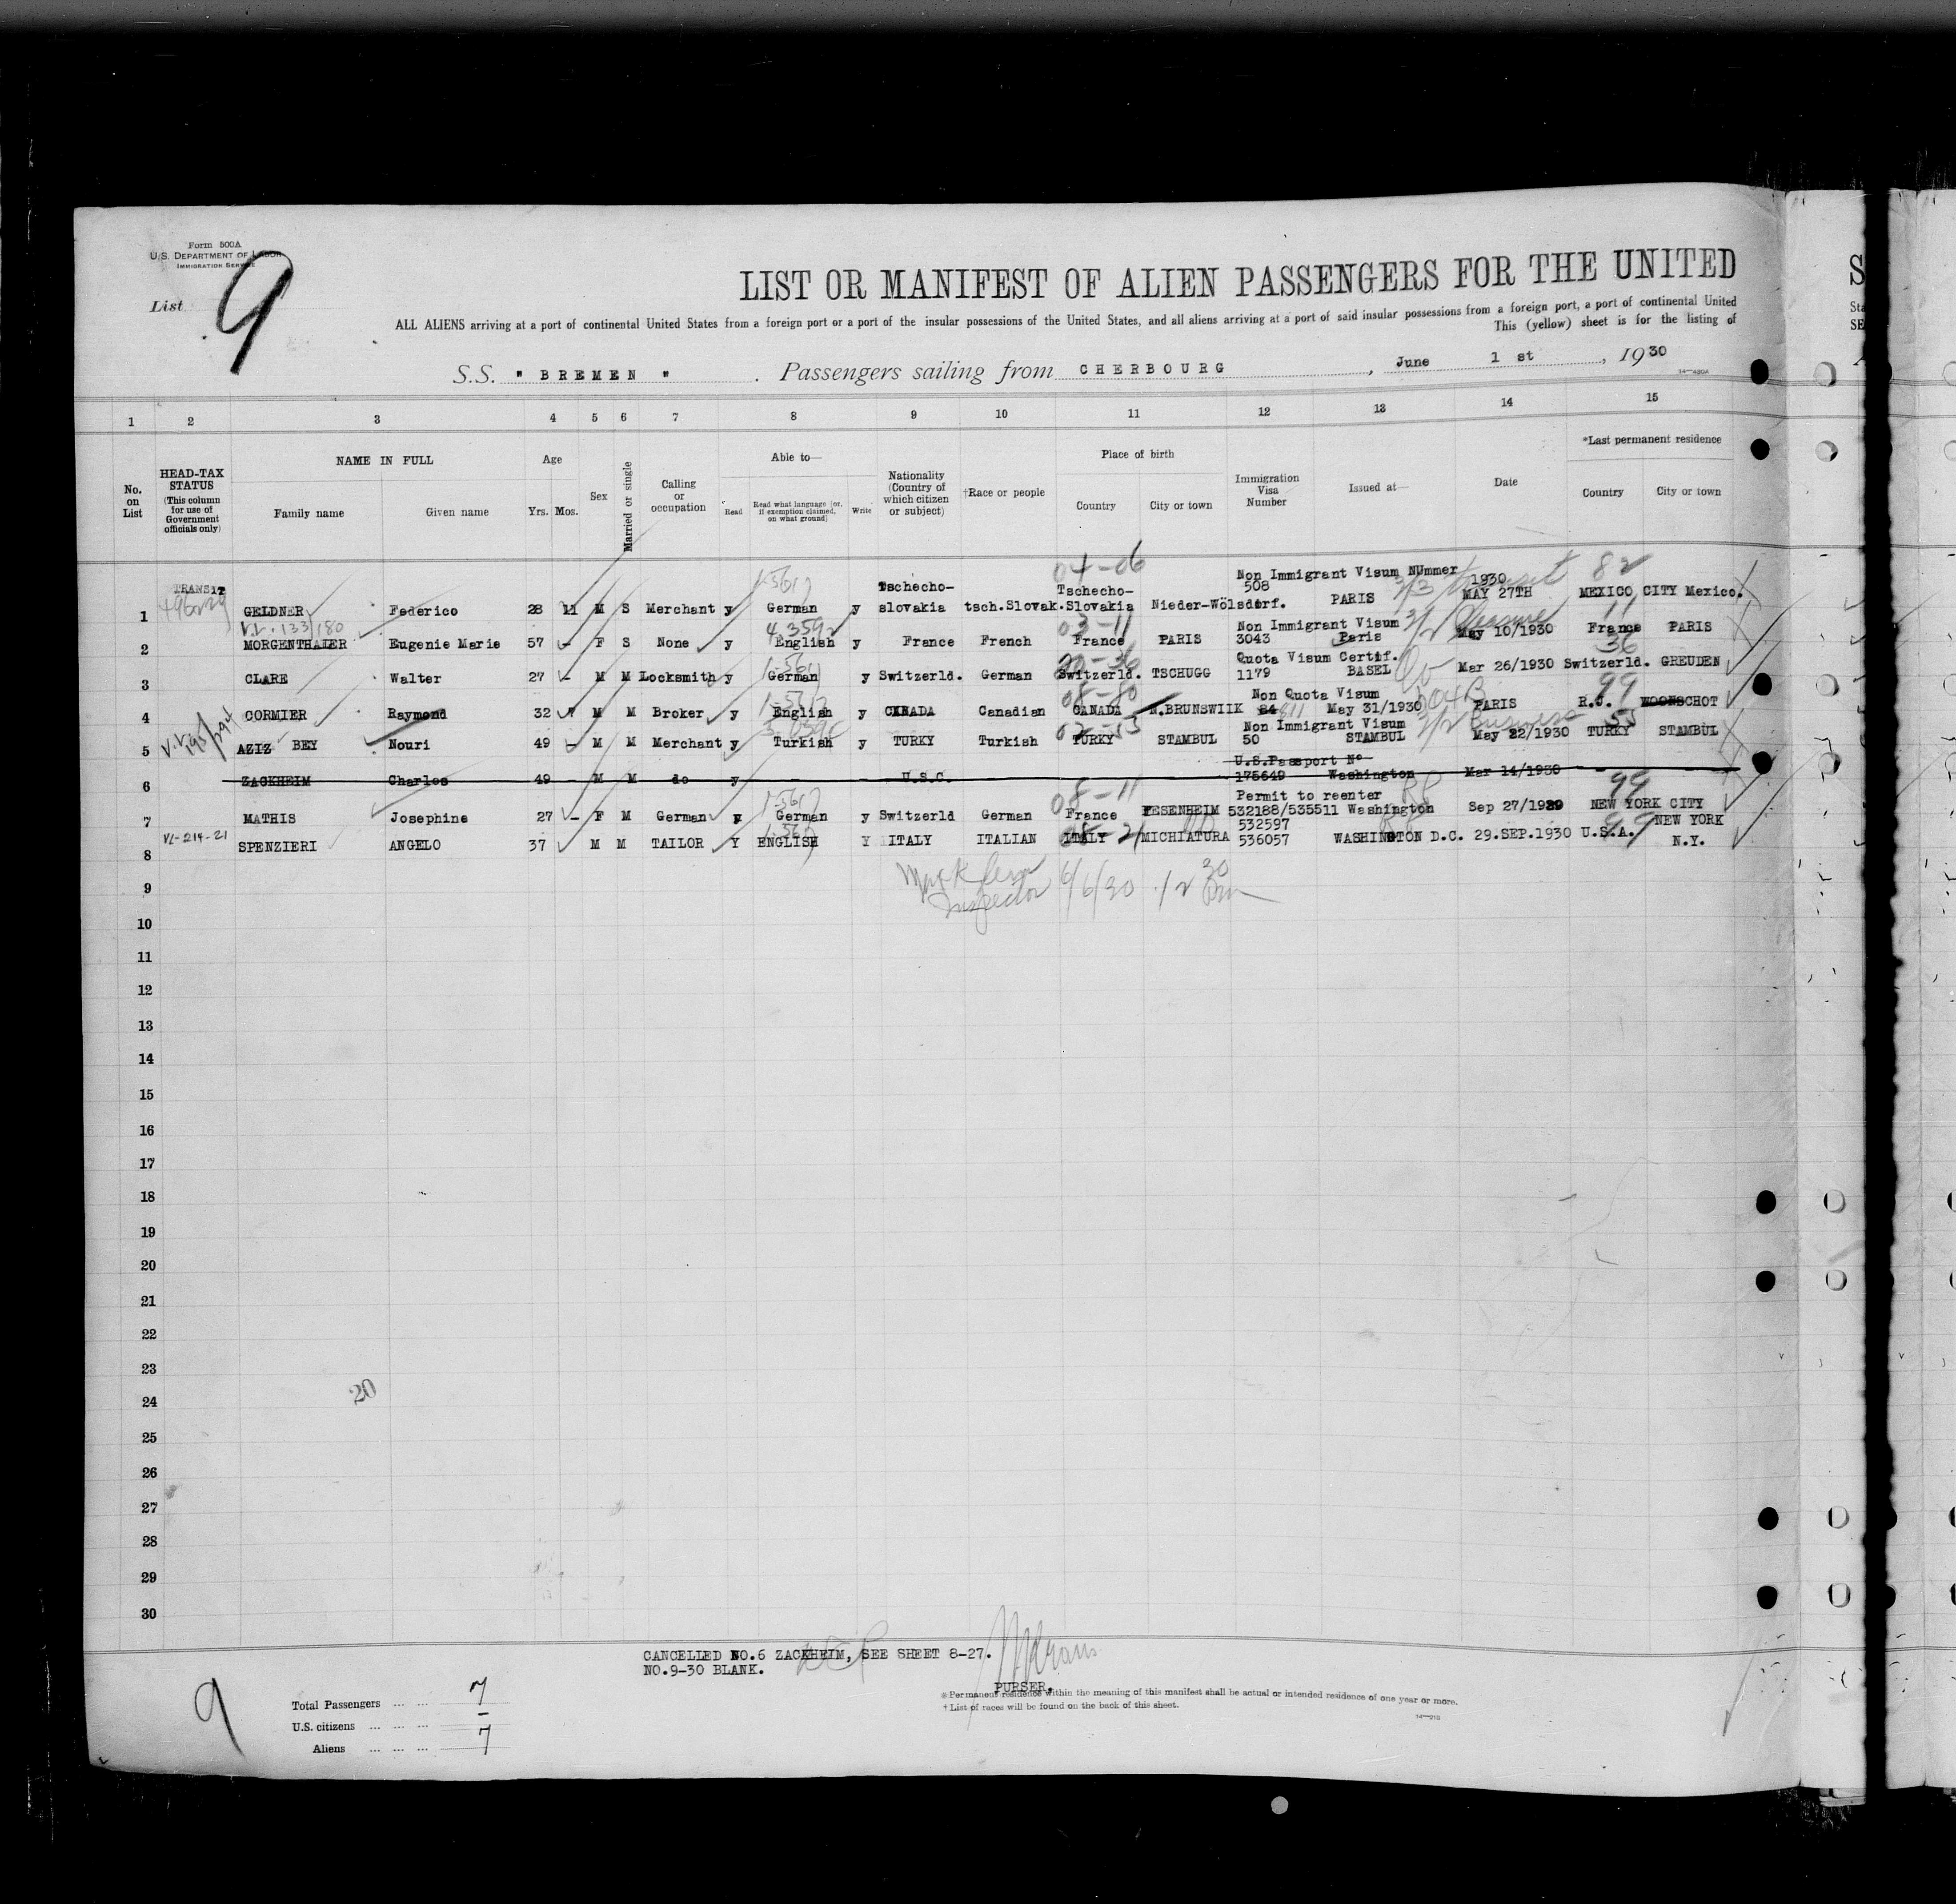 Form 500A
U.S. DEPARTMENT OF LABOR
IMMIGRATION SERVICE
List 9
LIST OR MANIFEST OF ALIEN PASSENGERS FOR THE UNITED
ALL ALIENS arriving at a port of continental United States from a foreign port or a port of the insular possessions of the United States, and all aliens arriving at a port of said insular possessions from a foreign port, a port of continental United
This (yellow) sheet is for the listing of
S.S. " BREMEN " . Passengers sailing from CHERBOURG , June 1 st , 1930
1 2 3 4 5 6 7 8 9 10 11 12 13 14 15
No. on List
HEAD-TAX STATUS (This column for use of Government officials only)
NAME IN FULL
Family name Given name
Age
Yrs. Mos.
Sex
Married or single
Calling or occupation
Able to—
Read Read what language (or, if exemption claimed, on what ground) Write
Nationality (Country of which citizen or subject)
†Race or people
Place of birth
Country City or town
Immigration Visa Number
Issued at—
Date
*Last permanent residence
Country City or town
04-06 82
TRANSIT Tschecho- Tschecho- Non Immigrant Visum NUmmer 1930
1 GELDNER Federico 28 11 M S Merchant y German y slovakia tsch.Slovak. Slovakia Nieder-Wölsdorf. 508 PARIS MAY 27TH MEXICO CITY Mexico.
V.V. 133/180 4359 03-11 Non Immigrant Visum 11
2 MORGENTHALER Eugenie Marie 57 - F S None y English y France French France PARIS 3043 Paris May 10/1930 France PARIS
Quota Visum Certif. 36
3 CLARE Walter 27 - M M Locksmith y German y Switzerld. German Switzerld. TSCHUGG 1179 BASEL Mar 26/1930 Switzerld. GREUDEN
08-80 Non Quota Visum 99
4 CORMIER Raymond 32 7 M M Broker y English y CANADA Canadian CANADA N.BRUNSWIIK 84 811 May 31/1930 PARIS R.C. WOONSCHOT
Non Immigrant Visum Business 55
5 AZIZ BEY Nouri 49 - M M Merchant y Turkish y TURKY Turkish TURKY STAMBUL 50 STAMBUL May 22/1930 TURKY STAMBUL
U.S.Passport No
6 ZACKHEIM Charles 49 - M M do y - - U.S.C. - - - 175649 Washington Mar 14/1930 - -
08-11 Permit to reenter 99
7 MATHIS Josephine 27 - F M German y German y Switzerld German France PESENHEIM 532188/535511 Washington Sep 27/1929 NEW YORK CITY
VL-214-21 532597 NEW YORK
8 SPENZIERI ANGELO 37 M M TAILOR Y ENGLISH Y ITALY ITALIAN ITALY MICHIATURA 536057 WASHINGTON D.C. 29.SEP.1930 U.S.A. N.Y.
Inspector 6/6/30 12 30 Pm
9
10
11
12
13
14
15
16
17
18
19
20
21
22
23
20
24
25
26
27
28
29
30
CANCELLED NO.6 ZACKHEIM, SEE SHEET 8-27.
NO.9-30 BLANK.
PURSER.
9
Total Passengers ... ... 7
U.S. citizens ... ... ... -
Aliens ... ... ... 7
*Permanent residence within the meaning of this manifest shall be actual or intended residence of one year or more.
† List of races will be found on the back of this sheet.